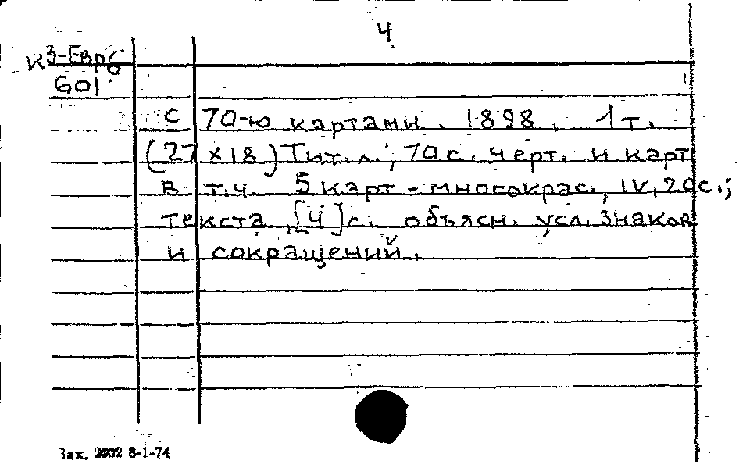 4
К3-Евр6
601
с 70-ю картами. 1898. 1 т.
(27×18) Тит. л.; 70 с. черт. и карт
в т.ч. 5 карт - многокрас., IV, 20 с.;
текста, [4] с. объясн. усл. знаков
и сокращений.
Зак. 2002 8-1-74